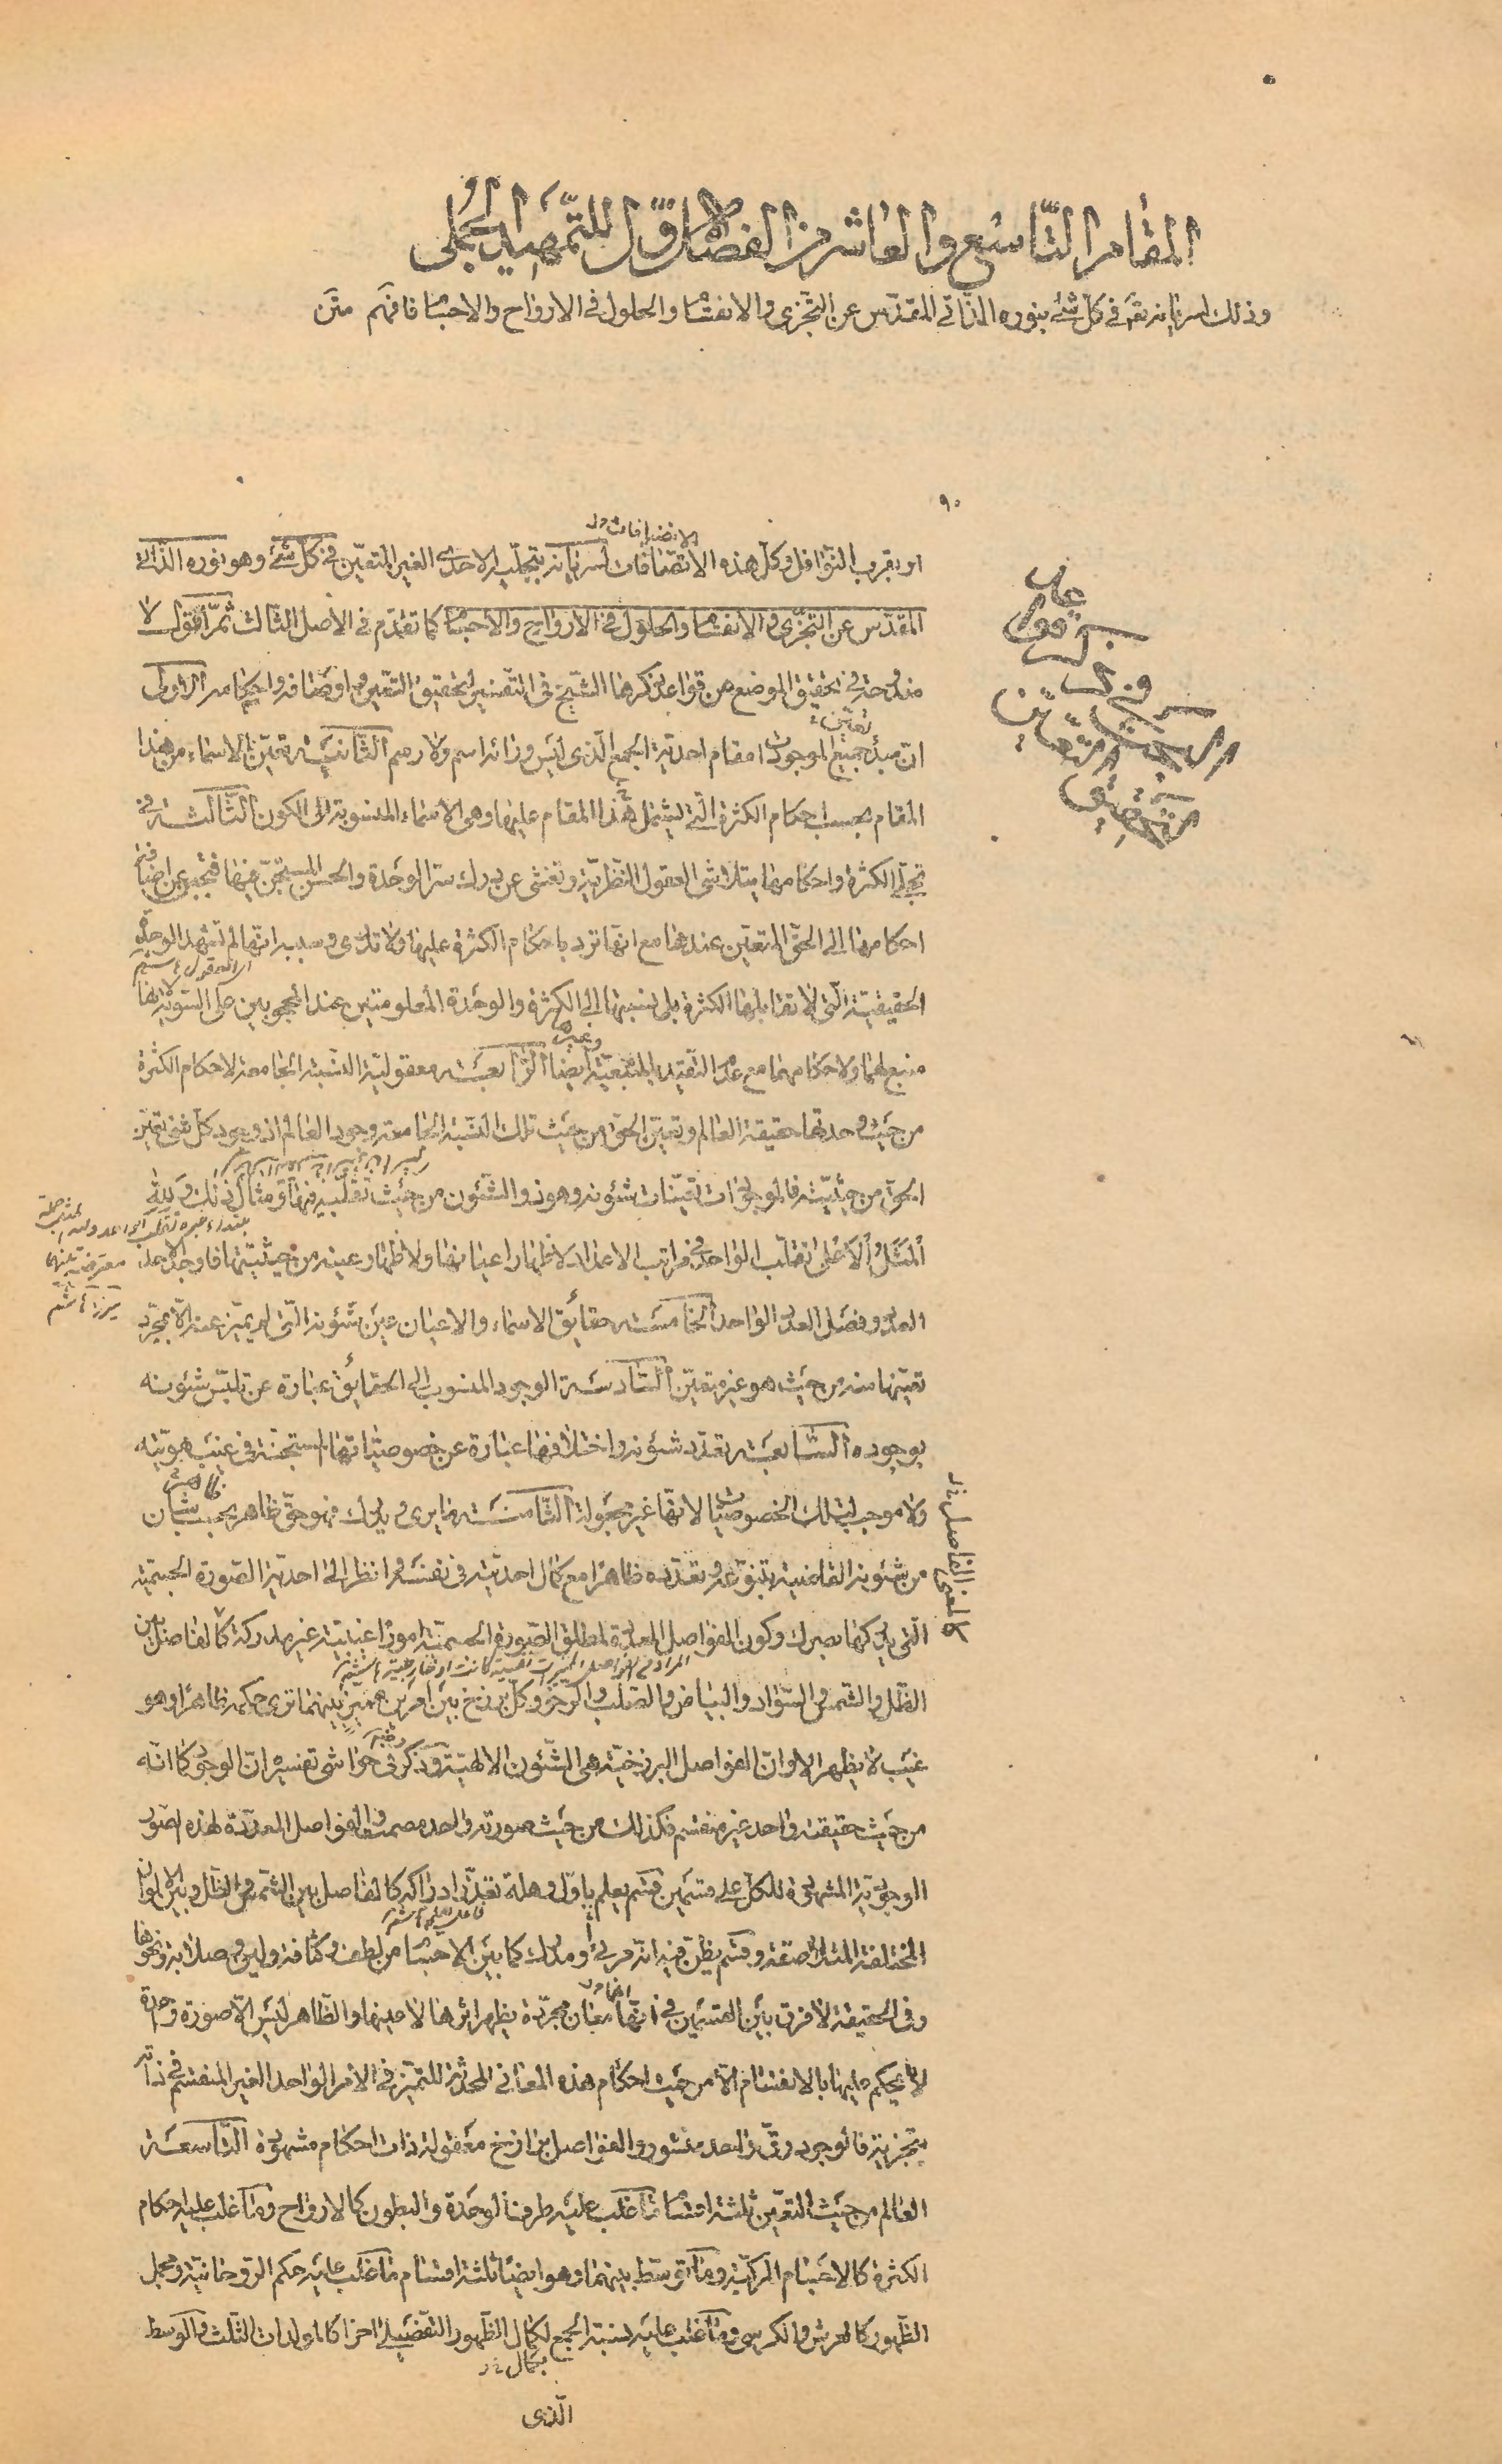 المقام التاسع والعاشر من الفصل الاول للتمهيد الجملى
وذلك لسريانه تعالى فى كل شئ بنوره الذاتى المقدس عن التجزى والانقسام والحلول فى الارواح والاجسام فافهم متن
٩٠
الانضيافات خ ل
او بقرب النوافل وكل هذه الاتصافات لسريانه بتجليه الاحدى الغير المتعين فى كل شئ وهو نوره الذاتى
المقدس عن التجزى والانقسام والحلول فى الارواح والاجسام كما تقدم فى الاصل الثالث ثم اقول لا
مندوحة فى تحقيق الموضع من قواعد ذكرها الشيخ فى التفسير لتحقيق التعين واوصافه واحكامه الاولى
تعين
ان مبدأ جميع الموجودات مقام احدية الجمع الذى ليس وراءه اسم ولا رسم الثانية تعين الاسماء من هذا
المقام بحسب احكام الكثرة التى يشتمل هذا المقام عليها وهى الاسماء المنسوبة الى الكون الثالثة فى
تجلى الكثرة واحكامها يتلاشى العقول النظرية وتعشى عن درك سر الوحدة والحسن المستجن فيها فتجبن عن اضافة
احكامها الى الحق المتعين عندها مع انها ترد باحكام الكثرة عليها ولا تدرى وسببه انها لم تشهد الوحدة
الحقيقية التى لا تقابلها الكثرة بل نسبتها الى الكثرة والوحدة المعلومتين عند المحجوبين على السوية لانها
وغيرها
منبع لهما ولاحكامهما مع عدم التقيد بالمنبعية ايضا الرابعة معقولية النسبة الجامعة لاحكام الكثرة
من حيث وحدتها حقيقة العالم وتعين الحق من حيث تلك النسبة الجامعة وجود العالم اذ وجود كل شئ تعين
الحق من حيثيته فالموجودات تعينات شئونه وهو ذو الشئون من حيث تقلبه فيها ومثال ذلك ولله
المثل الاعلى تقلب الواحد فى مراتب الاعداد لاظهار اعيانها ولاظهار عينه من حيثيتها فاوجد الواحد
العدد وفصل العدد الواحد الخامسة حقايق الاسماء والاعيان عين شئونه التى لم يتميز عنه الا بمجرد
تعينها منه من حيث هو غير متعين السادسة الوجود المنسوب الى الحقائق عبارة عن تلبس شئونه
بوجوده السابعة تعدد شئونه واختلافها عبارة عن خصوصياتها المستجنة فى غيب هويته
ولا موجب لتلك الخصوصيات لانها غير مجعولة الثامنة ما يرى ويدرك فهو حق ظاهر بحسب شأن
من شئونه القاضية بتنوعه وتعدده ظاهرا مع كمال احديته فى نفسه وانظر الى احدية الصورة الجسمية
التى يدركها بصرك وكون الفواصل المعددة لمطلق الصورة الجسمية امورا غيبية غير مدركة كالفاصل بين
الظل والشمس والسواد والبياض والصلب والرخو وكل برزخ بين امرين مميز بينهما ترى حكمه ظاهرا وهو
غيب لا يظهر الا وان الفواصل البرزخية هى الشئون الالهية وذكر فى حواشى تفسيره ان الوجود كما انه
من حيث حقيقته واحد غير منقسم فكذلك من حيث صورته واحد مصمت والفواصل المعددة لهذه الصور
الوجودية المشهودة للكل على قسمين قسم يعلم باول وهلة تعذر ادراكه كالفاصل بين الشمس والظل وبين الالوان
المختلفة المتلاصقة وقسم يظن فيه انه مرئى او مدرك كما بين الاجسام من لطف وكثافة ولين وصلابة ونحوها
وفى الحقيقة لا فرق بين القسمين فى انها معان مجردة يظهر اثرها لا عينها والظاهر ليس الا صورة واحدة
لا يحكم عليها بالانقسام الا من حيث احكام هذه المعانى المحدثة للتميز فى الامر الواحد الغير المنقسم فى ذاته
بتجزية فالوجود رق واحد منشور والفواصل برازخ معقولة ذات احكام مشهودة التاسعة
العالم من حيث التعين ثلثة اقسام ما غلب عليه طرف الوحدة والبطون كالارواح وما غلب عليه احكام
الكثرة كالاجسام المركبة وما توسط بينهما وهو ايضا ثلثة اقسام ما غلب عليه حكم الروحانية ومجمل
الظهور كالعرش والكرسى وما غلب عليه نسبة الجمع لكمال الظهور التفصيلى اخرا كالمولدات الثلث والوسط
بكمال خ ل
الذى